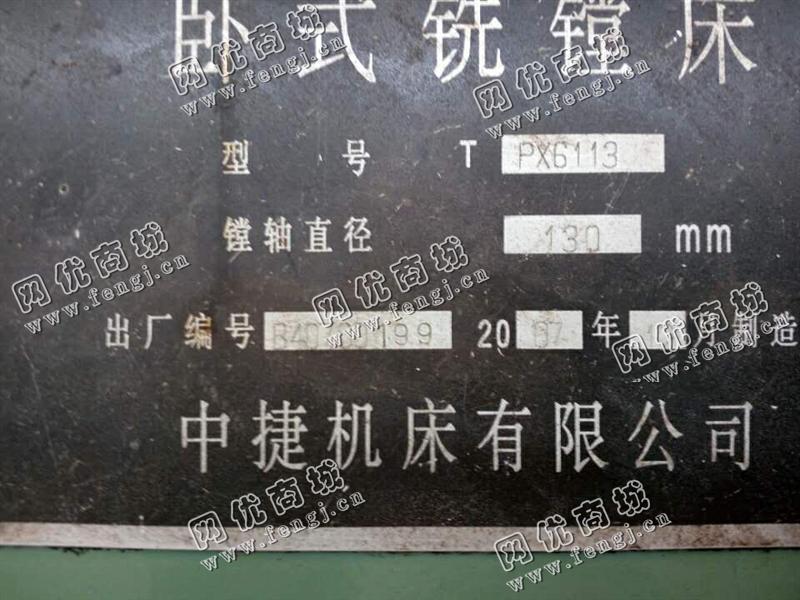 卧式铣镗床
型号 T PX6113
镗轴直径 130 mm
出厂编号 199 2007年 月制造
中捷机床有限公司
网优商城
www.fengj.cn
网优商城
www.fengj.cn
网优商城
www.fengj.cn
网优商城
www.fengj.cn
网优商城
www.fengj.cn
网优商城
www.fengj.cn
网优商城
www.fengj.cn
网优商城
www.fengj.cn